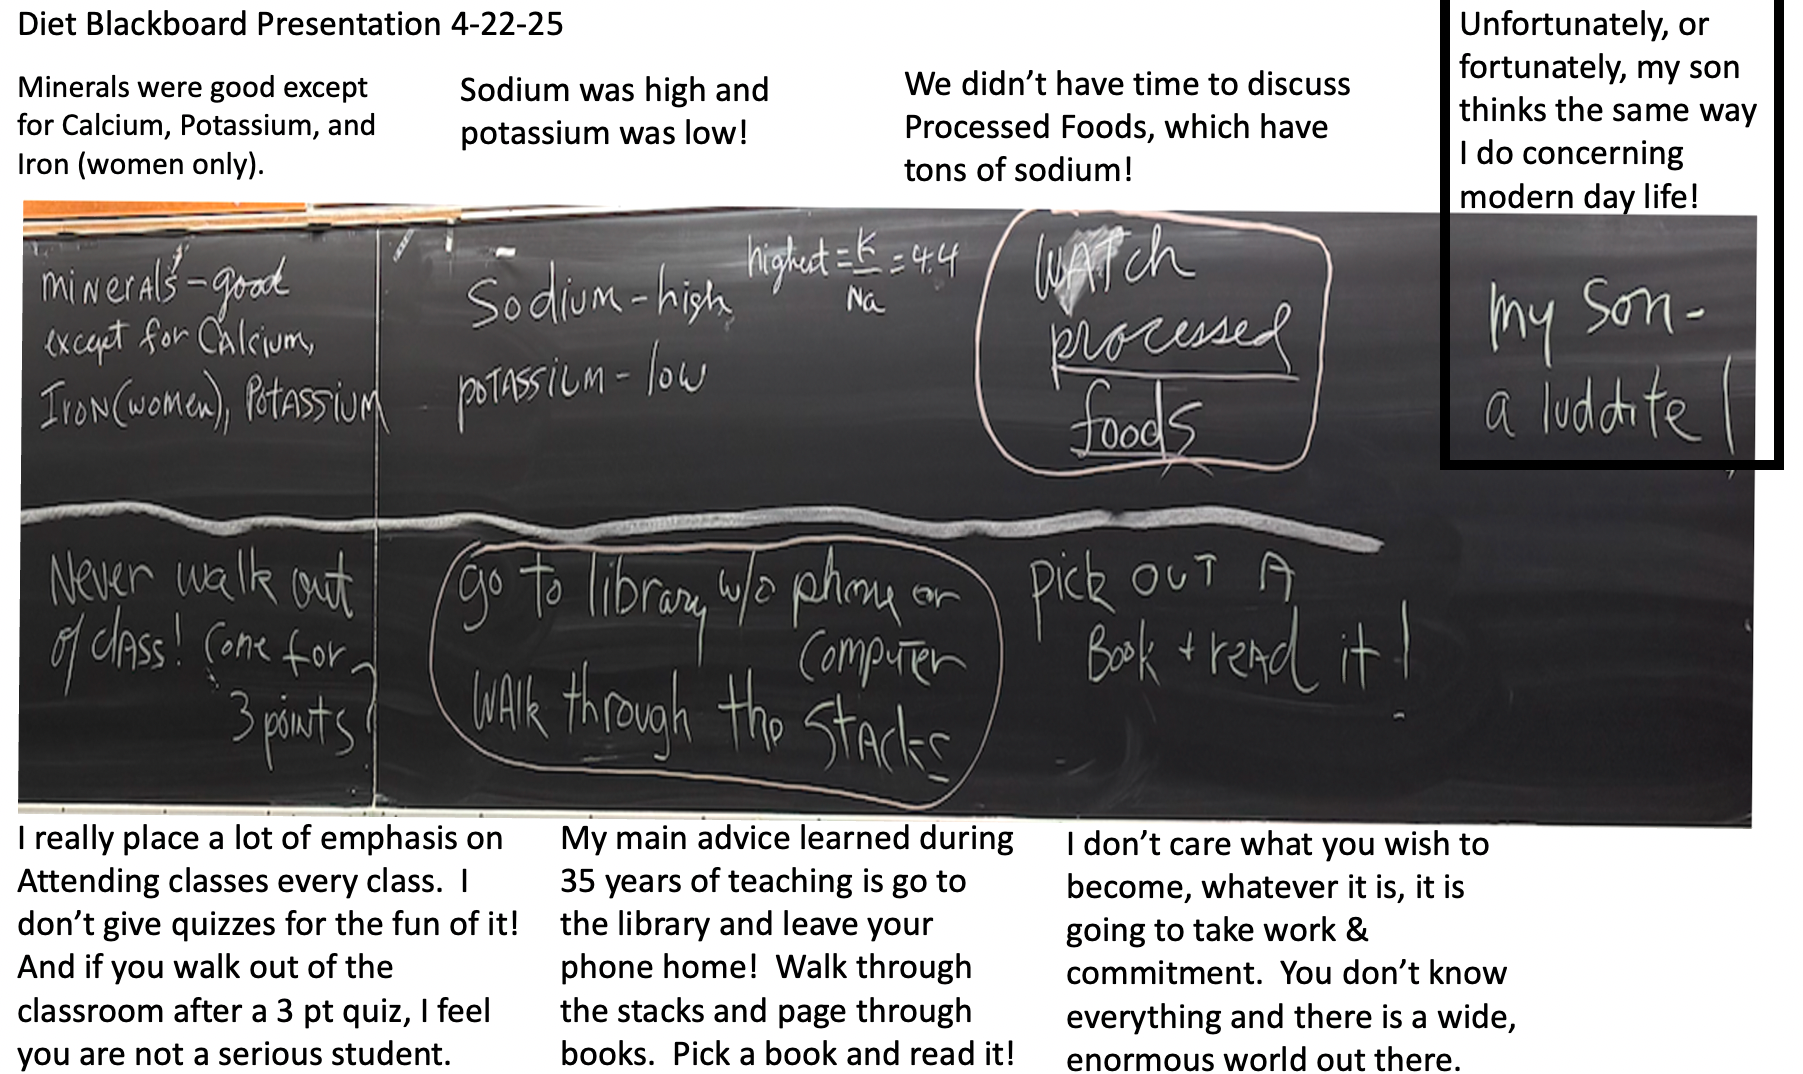 Diet Blackboard Presentation 4-22-25
Minerals were good except
for Calcium, Potassium, and
Iron (women only).
Sodium was high and
potassium was low!
We didn’t have time to discuss
Processed Foods, which have
tons of sodium!
Unfortunately, or
fortunately, my son
thinks the same way
I do concerning
modern day life!
minerals - good
except for Calcium,
Iron (women), Potassium
Sodium - high
potassium - low
highest = K = 4.4
Na
WATch
processed
foods
my son -
a luddite!
Never walk out
of class! Come for
3 points?
go to library w/o phone or
computer
WAlk through the stacks
pick out A
Book + read it!
I really place a lot of emphasis on
Attending classes every class.  I
don’t give quizzes for the fun of it!
And if you walk out of the
classroom after a 3 pt quiz, I feel
you are not a serious student.
My main advice learned during
35 years of teaching is go to
the library and leave your
phone home!  Walk through
the stacks and page through
books.  Pick a book and read it!
I don’t care what you wish to
become, whatever it is, it is
going to take work &
commitment.  You don’t know
everything and there is a wide,
enormous world out there.